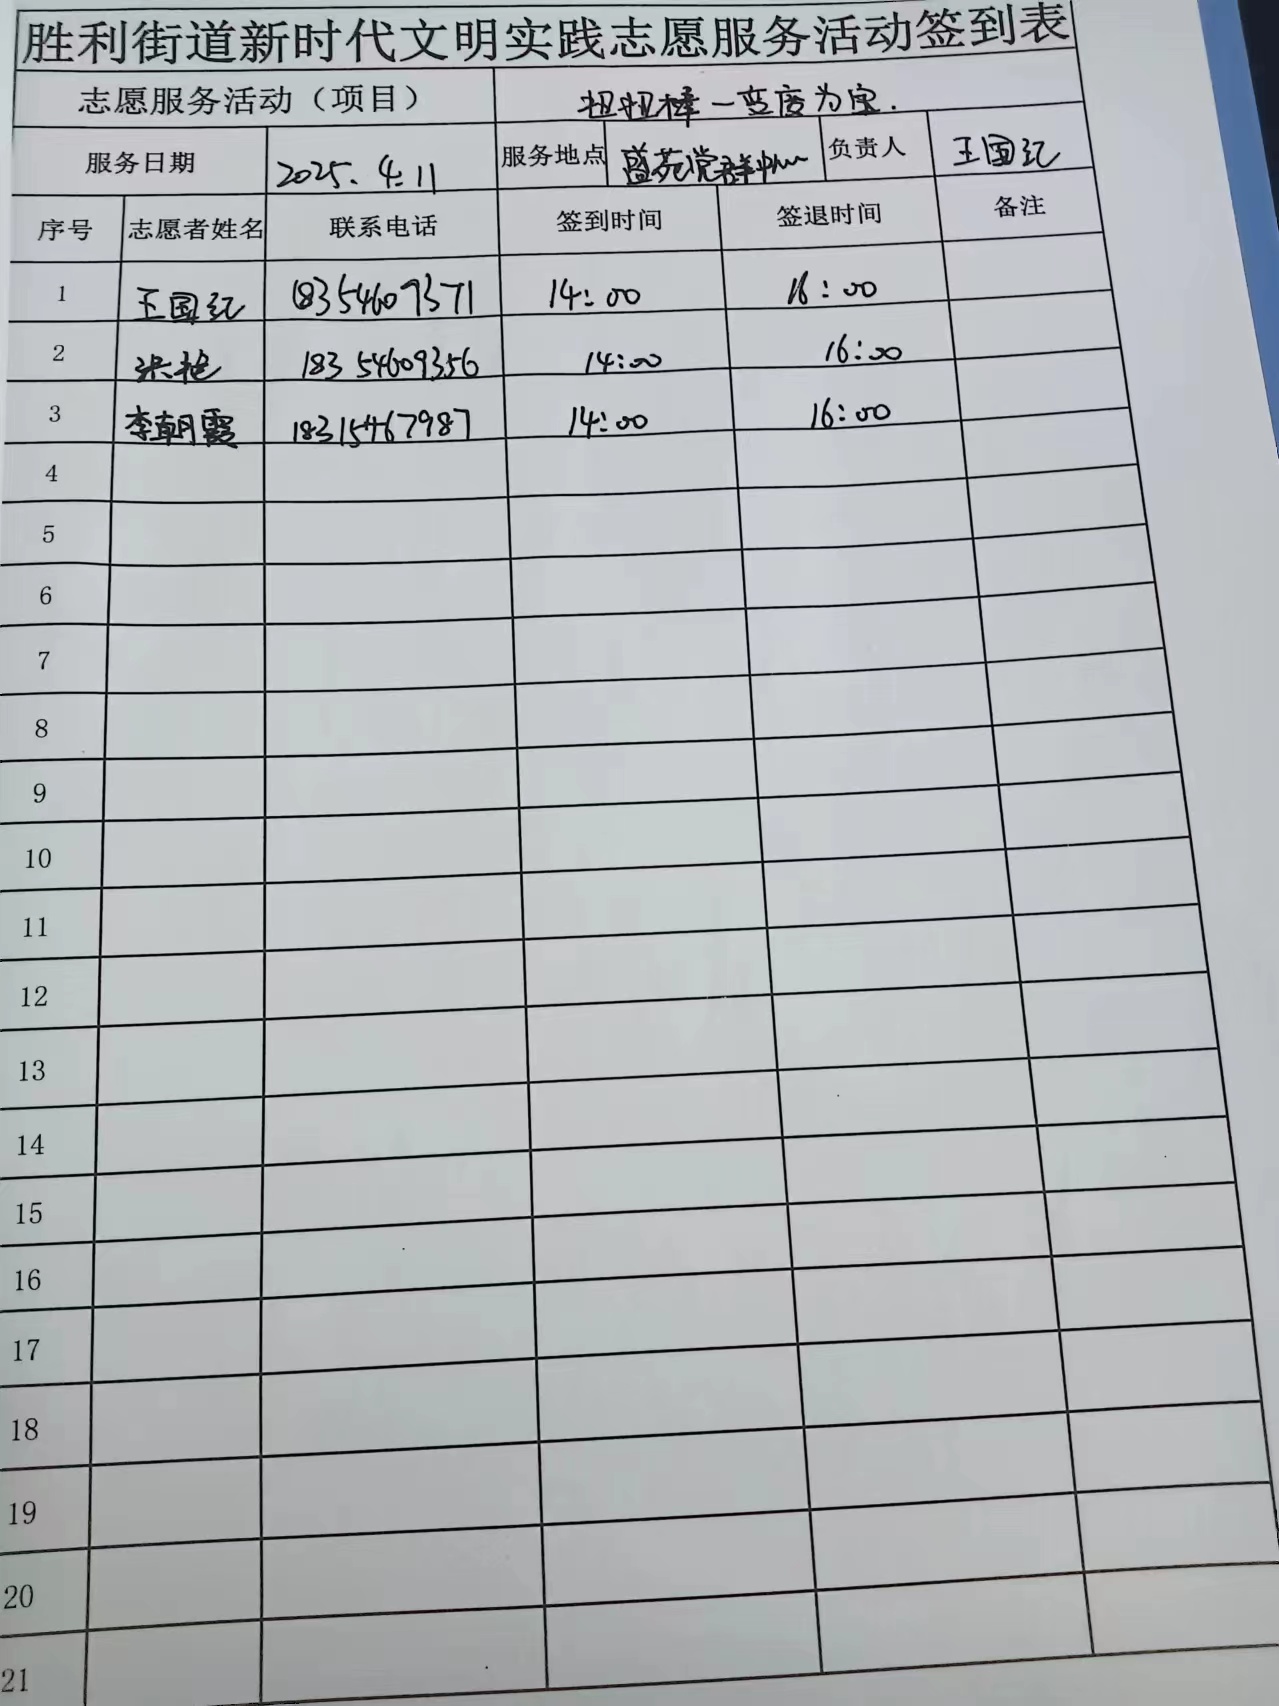 胜利街道新时代文明实践志愿服务活动签到表
志愿服务活动（项目） 扭扭棒一变废为宝.
服务日期 2025.4.11 服务地点 蓝苑党群中心 负责人 王国纪
序号 志愿者姓名 联系电话 签到时间 签退时间 备注
1 王国纪 18354609371 14:00 16:00
2 18354609356 14:00 16:00
3 李朝霞 18315467987 14:00 16:00
4
5
6
7
8
9
10
11
12
13
14
15
16
17
18
19
20
21